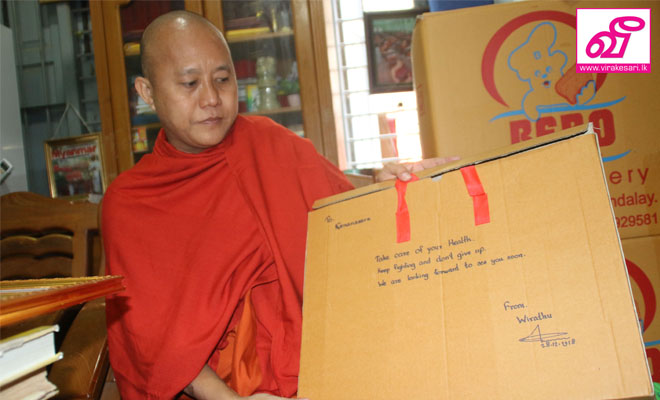 வீ
www.virakesari.lk
BEBO
ery
ndalay.
929581
Myanmar
To
Gnanasara
Take care of your Health.
Keep fighting and don't give up.
We are looking forward to see you soon.
From
Wirathu